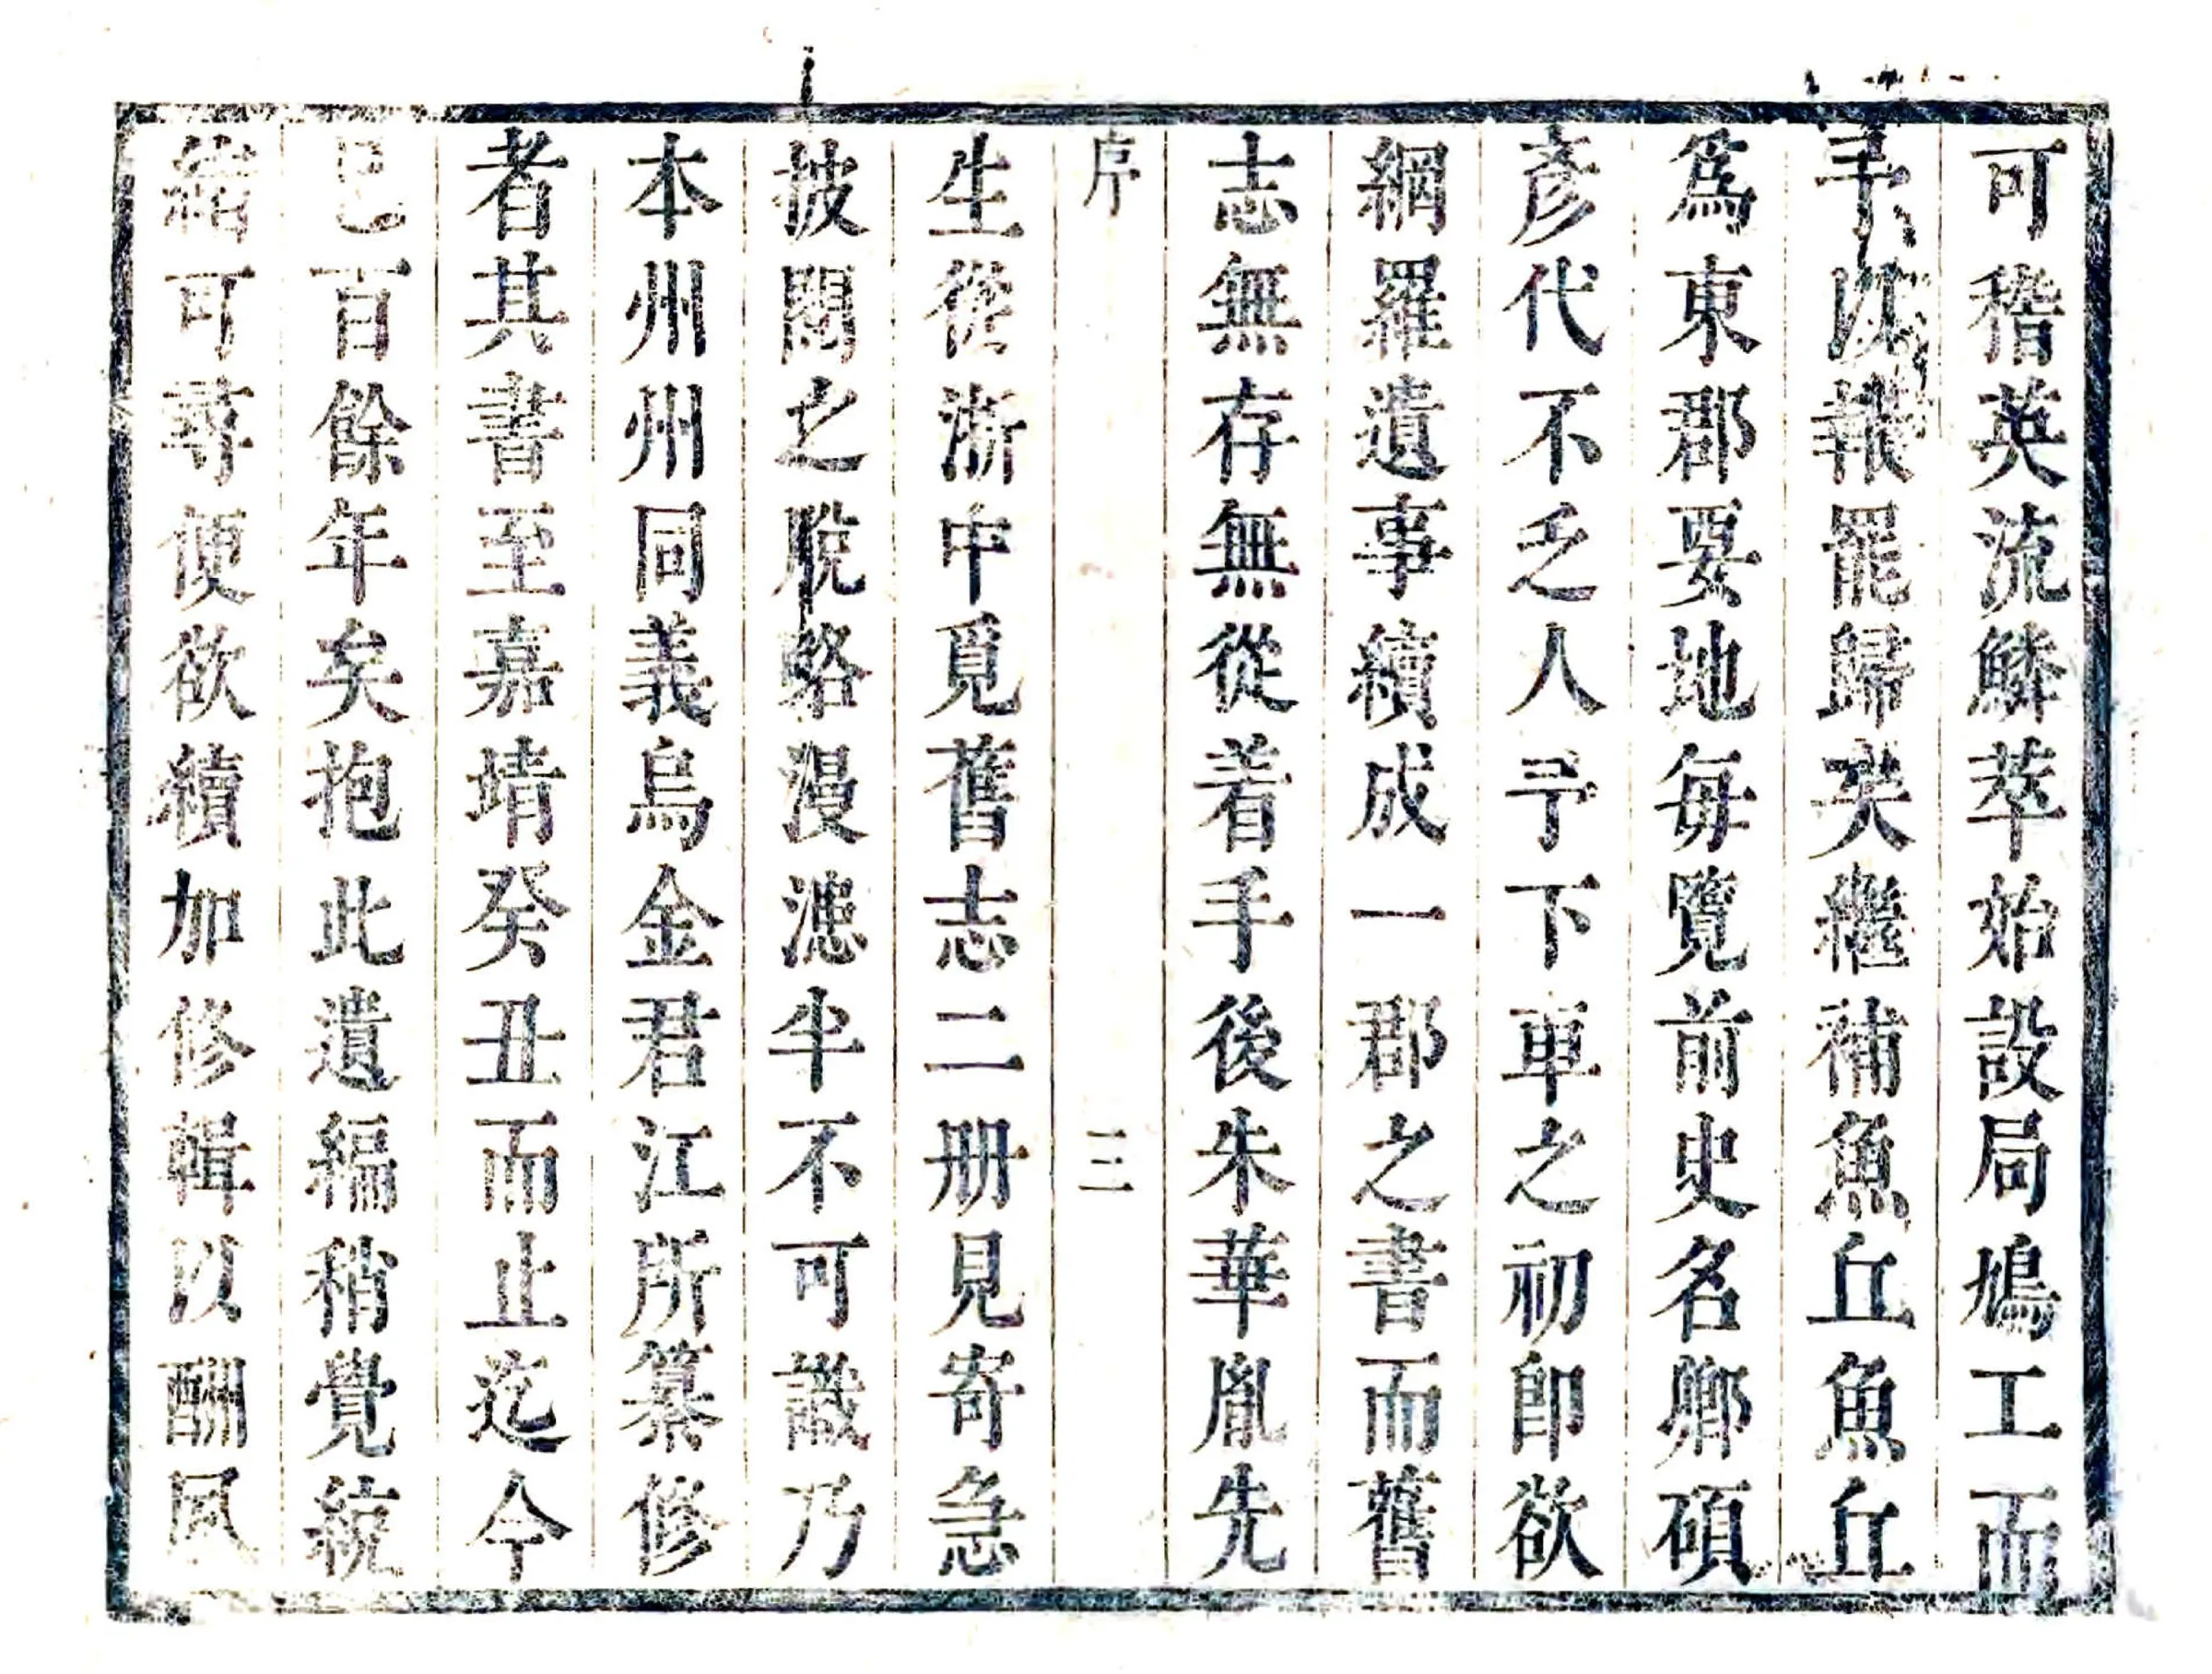 可稽英流鱗萃始設局鳩工而
予以報罷歸矣繼補魚丘魚丘
爲東郡要地每覽前史名鄉碩
彥代不乏人予下車之初卽欲
網羅遺事續成一郡之書而舊
志無存無從着手後朱華胤先
序
三
生從浙中覓舊志二册見寄急
披閱之脫略漫漶半不可識乃
本州州同義烏金君江所纂修
者其書至嘉靖癸丑而止迄今
已百餘年矣抱此遺編稍覺統
緒可尋便欲續加修輯以酬夙